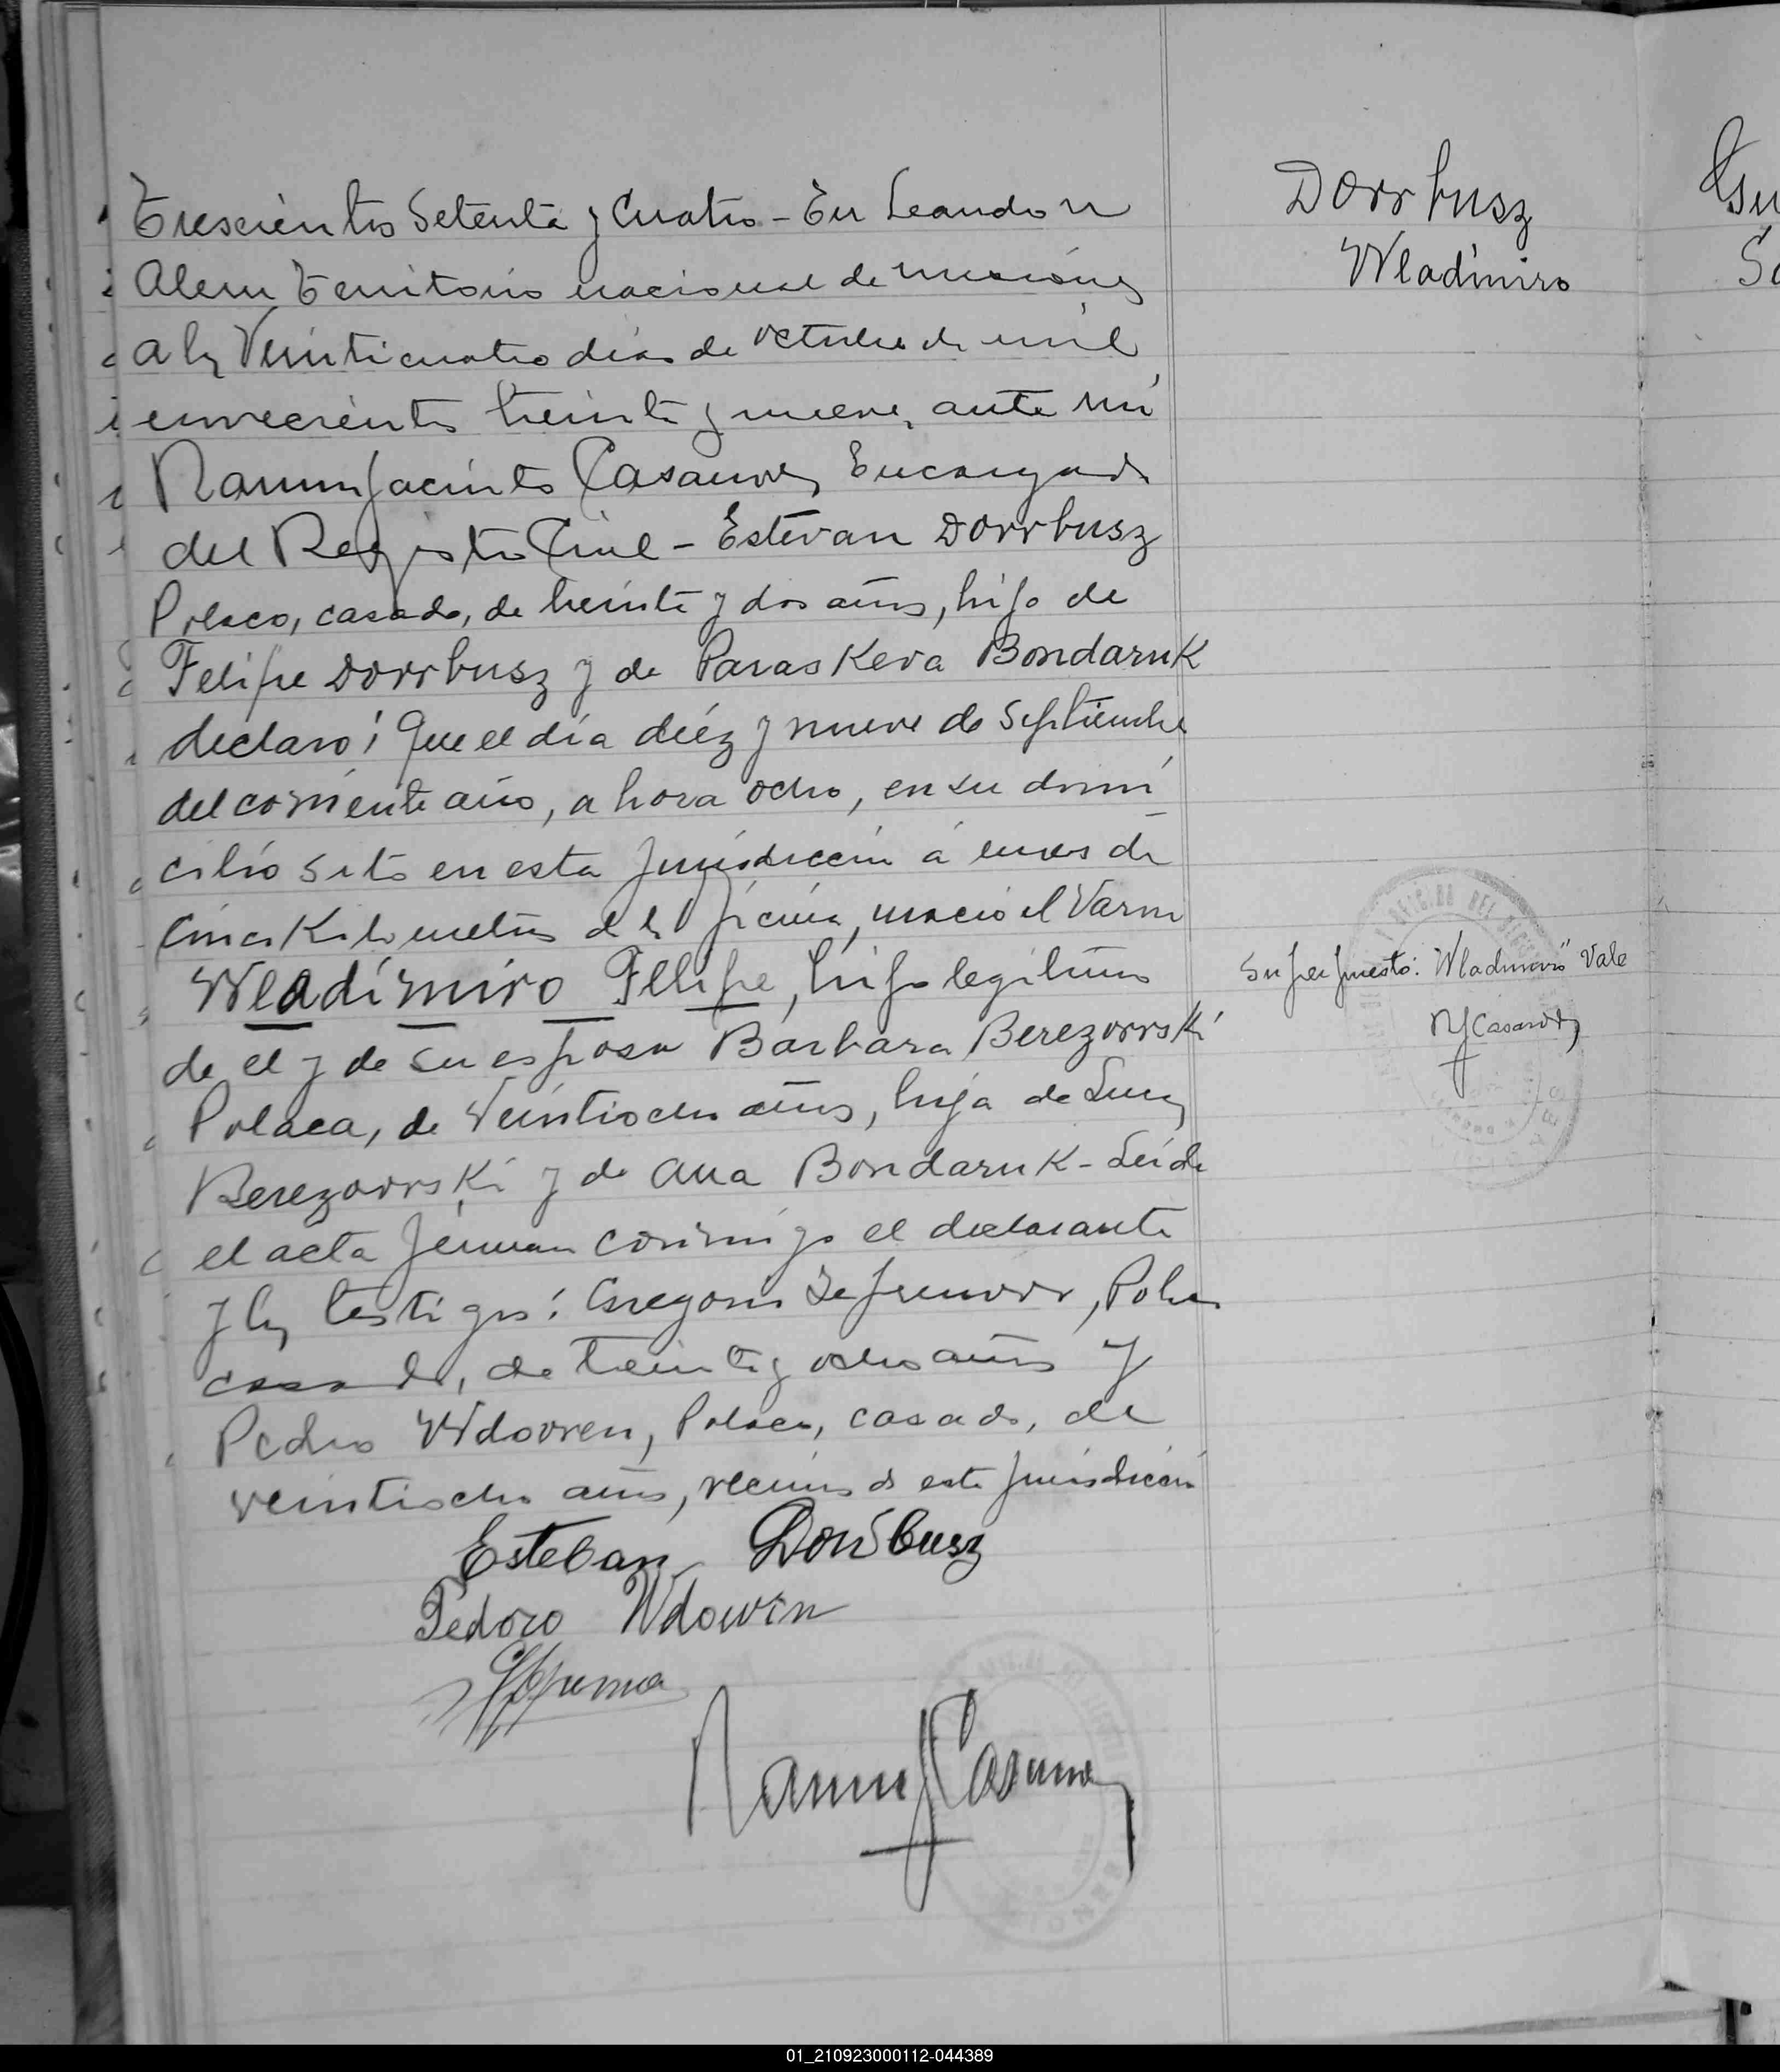 Trescientos Setenta y Cuatro - En Leandro N
Alem Territorio nacional de Misiones
a los Veinticuatro dias de octubre de mil
novecientos treinta y nueve, ante mí
Ramon Jacinto Casanova, Encargado
del Registro Civil - Estevan Dorrbusz
Polaco, casado, de treinta y dos años, hijo de
Felipe Dorrbusz y de Paraskeva Bondaruk
declaró: Que el día diéz y nueve de Septiembre
del corriente año, a hora ocho, en su domi
cilio sito en esta Jurisdiccion á unos
Cinco Kilometros de la oficina, nació el Varon
Wladimiro Felipe, hijo legitimo
de el y de su esposa Barbara Berezovvski
Polaca, de Veintiocho años, hija de Lucas
Berezovvski y de Ana Bondaruk - Leida
el acta firman conmigo el declarante
y los testigos: Gregorio, Polaco
casado, de treinta y ocho años y
Pedro Wdovven, Polaco, casado, de
veintiocho años, vecinos de esta Jurisdiccion
Esteban Dornbusz
Pedoro Wdowin
Ramon J Casanova
Dorrbusz
Wladimiro
Superpuesto: "Wladimiro" Vale
R J Casanova
01_210923000112-044389